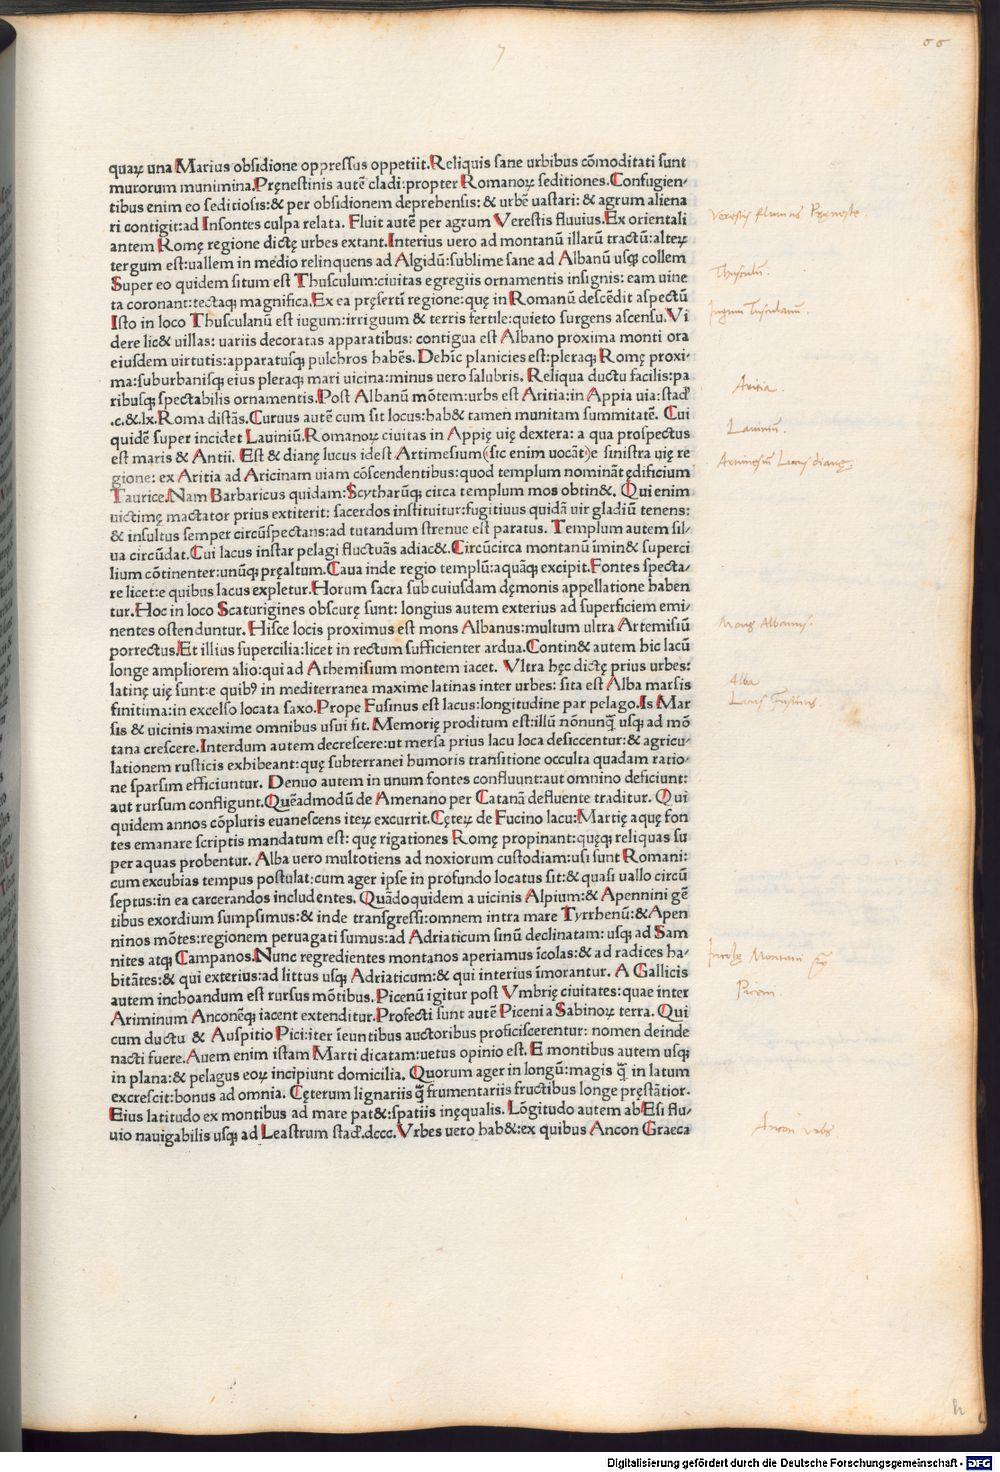 66
quaꝝ una Marius obsidione oppressus oppetiit.Reliquis sane urbibus cōmoditati sunt
murorum munimina.Pręnestinis autē cladi:propter Romanoꝝ seditiones.Confugien-
tibus enim eo seditiosis:& per obsidionem deprehensis:& urbē uastari:& agrum aliena
ri contigit:ad Insontes culpa relata. Fluit autē per agrum Verestis fluuius.Ex orientali
antem Romę regione dictę urbes extant.Interius uero ad montanū illarū tractū:alteꝝ
tergum est:uallem in medio relinquens ad Algidū:sublime sane ad Albanū usqꝫ collem
Super eo quidem situm est Thusculum:ciuitas egregiis ornamentis insignis: eam uine
ta coronant:tectaqꝫ magnifica.Ex ea pręsertī regione:quę in Romanū descēdit aspectū
Isto in loco Thusculanū est iugum:irriguum & terris fertile:quieto surgens ascensu.Vi
dere lic& uillas: uariis decoratas apparatibus: contigua est Albano proxima monti ora
eiusdem uirtutis:apparatusqꝫ pulchros habēs. Dehic planicies est:pleraqꝫ Romę proxi-
ma:suburbanisqꝫ eius pleraqꝫ mari uicina:minus uero salubris. Reliqua ductu facilis:pa
ribusqꝫ spectabilis ornamentis.Post Albanū mōtem:urbs est Aritia:in Appia uia:stad̄
.c.&.lx.Roma distās.Curuus autē cum sit locus:hab& tamen munitam summitatē. Cui
quidē super incidet Lauiniū.Romanoꝝ ciuitas in Appię uię dextera: a qua prospectus
est maris & Antii. Est & dianę lucus idest Artimesium(sic enim uocāt)e sinistra uię re
gione: ex Aritia ad Aricinam uiam cōscendentibus:quod templum nomināt ędificium
Taurice.Nam Barbaricus quidam:Scytharūqꝫ circa templum mos obtin&. Qui enim
uictimę mactator prius extiterit: sacerdos instituitur:fugitiuus quidā uir gladiū tenens:
& insultus semper circūspectans:ad tutandum strenue est paratus. Templum autem sil-
ua circūdat.Cui lacus instar pelagi fluctuās adiac&.Circūcirca montanū imin& superci
lium cōtinenter:unūqꝫ pręaltum.Caua inde regio templū:aquāqꝫ excipit.Fontes specta-
re licet:e quibus lacus expletur.Horum sacra sub cuiusdam dęmonis appellatione haben
tur.Hoc in loco Scaturigines obscurę sunt: longius autem exterius ad superficiem emi-
nentes ostenduntur. Hisce locis proximus est mons Albanus:multum ultra Artemisiū
porrectus.Et illius supercilia:licet in rectum sufficienter ardua.Contin& autem hic lacū
longe ampliorem alio:qui ad Athemisium montem iacet. Vltra hęc dictę prius urbes:
latinę uię sunt:e quibꝰ in mediterranea maxime latinas inter urbes: sita est Alba marsis
finitima:in excelso locata saxo.Prope Fusinus est lacus:longitudine par pelago.Is Mar
sis & uicinis maxime omnibus usui fit. Memorię proditum est:illū nōnunq̄ usqꝫ ad mō
tana crescere.Interdum autem decrescere:ut mersa prius lacu loca desiccentur:& agricu-
lationem rusticis exhibeant:quę subterranei humoris transitione occulta quadam ratio-
ne sparsim efficiuntur. Denuo autem in unum fontes confluunt:aut omnino deficiunt:
aut rursum confligunt.Quēadmodū de Amenano per Catanā defluente traditur. Qui
quidem annos cōpluris euanescens iteꝝ excurrit.Cęteꝝ de Fucino lacu:Martię aquę fon
tes emanare scriptis mandatum est: quę rigationes Romę propinant:quęqꝫ reliquas su
per aquas probentur. Alba uero multotiens ad noxiorum custodiam:usi sunt Romani:
cum excubias tempus postulat:cum ager ipse in profundo locatus sit:& quasi uallo circū
septus:in ea carcerandos includentes. Quādoquidem a uicinis Alpium:& Apennini gē
tibus exordium sumpsimus:& inde transgressi:omnem intra mare Tyrrhenū:&Apen
ninos mōtes:regionem peruagati sumus:ad Adriaticum sinū declinatam: usqꝫ ad Sam
nites atqꝫ Campanos.Nunc regredientes montanos aperiamus īcolas:& ad radices ha-
bitātes:& qui exterius:ad littus usqꝫ Adriaticum:& qui interius īmorantur. A Gallicis
autem inchoandum est rursus mōtibus.Picenū igitur post Vmbrię ciuitates:quae inter
Ariminum Anconēqꝫ iacent extenditur.Profecti sunt autē Piceni a Sabinoꝝ terra. Qui
cum ductu & Auspitio Pici:iter īeuntibus auctoribus proficiscerentur: nomen deinde
nacti fuere.Auem enim istam Marti dicatam:uetus opinio est.E montibus autem usqꝫ
in plana:& pelagus eoꝝ incipiunt domicilia. Quorum ager in longū:magis q̄ in latum
excrescit:bonus ad omnia. Cęterum lignariis q̄ frumentariis fructibus longe pręstātior.
Eius latitudo ex montibus ad mare pat&:spatiis inęqualis. Lōgitudo autem ab Esi flu-
uio nauigabilis usqꝫ ad Leastrum stad̄.dccc.Vrbes uero hab&:ex quibus Ancon Graeca
Verestis fluuius Pręneste
Thusculū.
Iugum Tusculanū.
Aritia.
Lauiniū.
Artimesiū Lucus dianę
Mons Albanus.
Alba
Lacus Fusinus
Incolę Montani
Piceni.
Ancon urbs
Digitalisierung gefördert durch die Deutsche Forschungsgemeinschaft - DFG